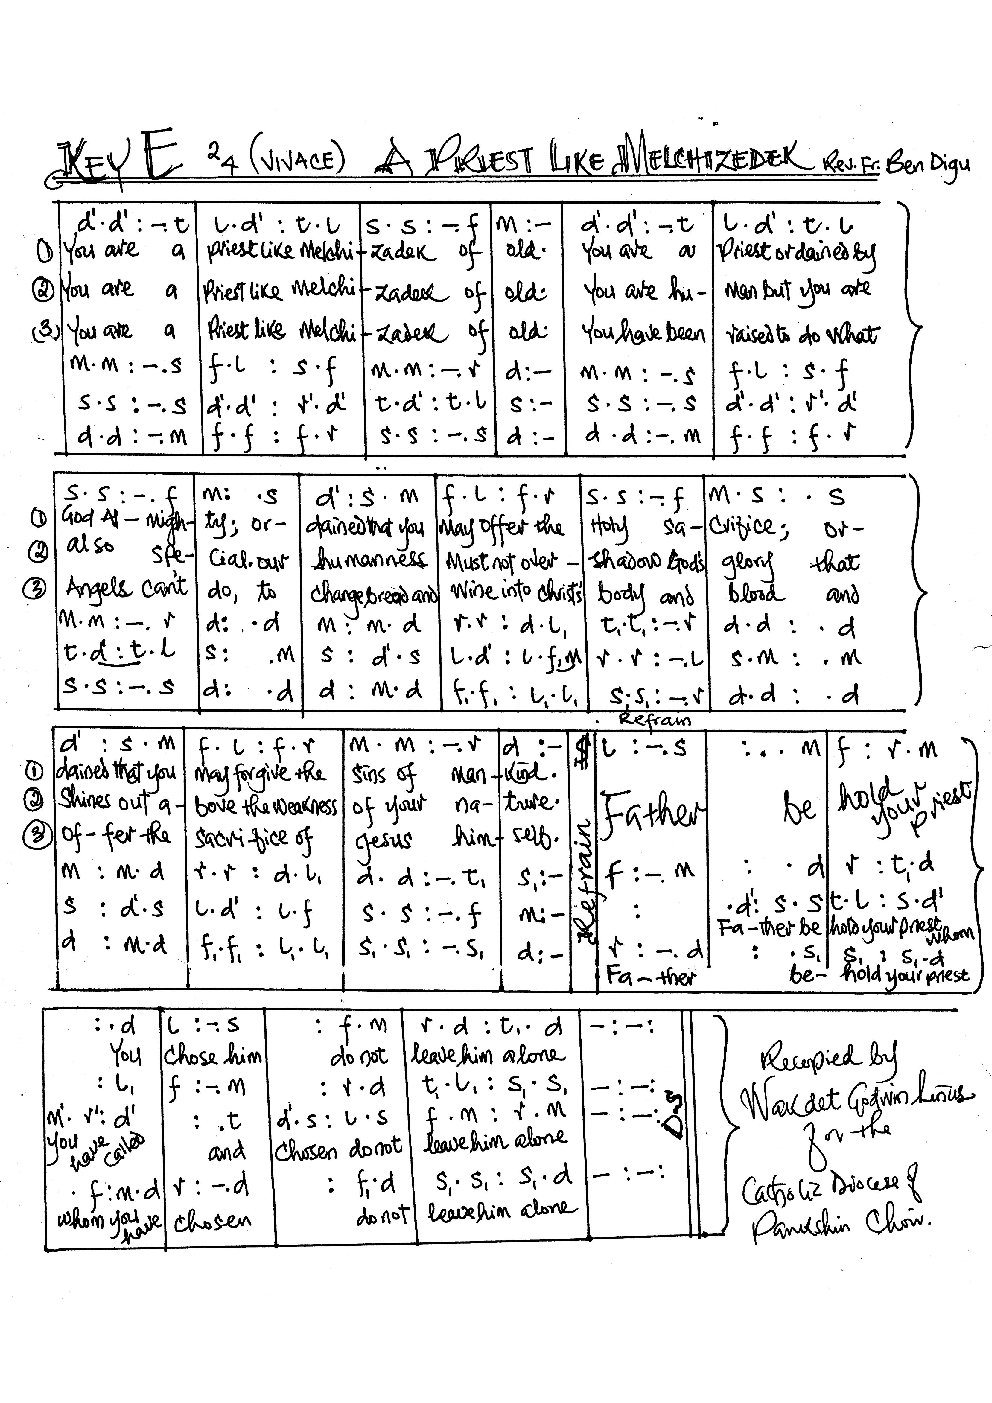 KEY E 2/4 (VIVACE) A PRIEST LIKE MELCHIZEDEK Rev. Fr. Ben Digu
d'.d':-.t | l.d':t.l | s.s:-.f | m:- | d'.d':-.t | l.d':t.l
① You are a | priest like Melchi- | zadek of | old. | You are a | Priest ordained by
② You are a | Priest like Melchi- | zadek of | old: | You are hu- | man but you are
③ You are a | Priest like Melchi- | zadek of | old: | You have been | raised to do what
m.m:-.s | f.l:s.f | m.m:-.r | d:- | m.m:-.s | f.l:s.f
s.s:-.s | d'.d':r'.d' | t.d':t.l | s:- | s.s:-.s | d'.d':r'.d'
d.d:-.m | f.f:f.r | s.s:-.s | d:- | d.d:-.m | f.f:f.r
s.s:-.f | m: .s | d':s.m | f.l:f.r | s.s:-.f | m.s: .s
① God Al-migh- | ty; or- | dained that you | may offer the | Holy sa- | crifice; or-
② also spe- | cial. our | humanness | Must not over- | shadow God's | glory that
③ Angels can't | do, to | change bread and | wine into Christ's | body and | blood and
m.m:-.r | d: .d | m:m.d | r.r:d.l, | t,.t,:-.r | d.d: .d
t.d:t.l | s: .m | s:d'.s | l.d':l.f,m | r.r:-.l | s.m: .m
s.s:-.s | d: .d | d:m.d | f,.f,:l,.l, | s,.s,:-.r | d.d: .d
Refrain
d':s.m | f.l:f.r | m.m:-.r | d:- | Refrain | l:-.s | :.. m | f:r.m
① dained that you | may forgive the | sins of man- | kind. | Father | be | hold your priest
② Shines out a- | bove the weakness | of your na- | ture.
③ of-fer the | sacrifice of | Jesus him- | self.
m:m.d | r.r:d.l, | d.d:-.t, | s,:- | f:-.m | : .d | r:t,.d
s:d'.s | l.d':l.f | s.s:-.f | m:- | : | .d':s.s | t.l:s.d'
Fa-ther be | hold your priest whom
d:m.d | f,.f,:l,.l, | s,.s,:-.s, | d:- | r:-.d | : .s, | s,:s,.d
Fa-ther | be- | hold your priest
:.d | l:-.s | :f.m | r.d:t,.d | -:-:
You | chose him | do not | leave him alone
:l, | f:-.m | :r.d | t,.l,:s,.s, | -:-: D.S
m'.r':d' | :.t | d'.s:l.s | f.m:r.m | -:-:
You have called | and | Chosen do not | leave him alone
.f:m.d | r:-.d | :f,.d | s,.s,:s,.d | -:-:
whom you have | chosen | do not | leave him alone
Recopied by
Wakdet Godwin Linus
for the
Catholic Diocese of
Pankshin Choir.